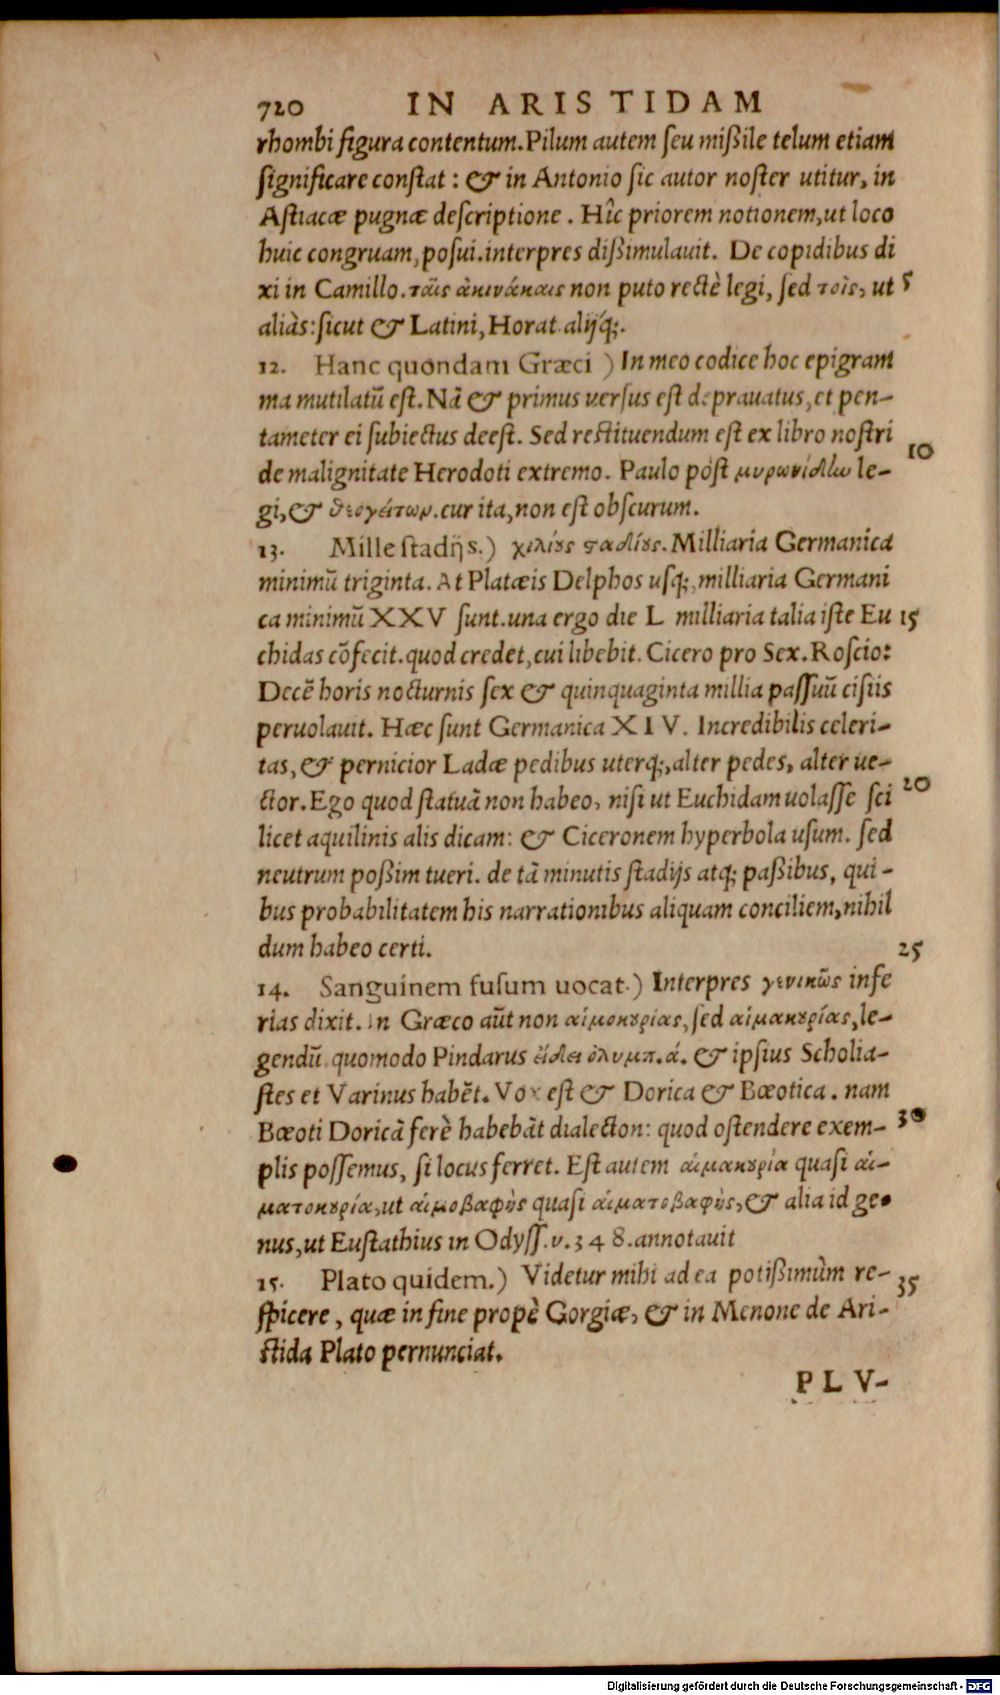 720 IN ARISTIDAM
rhombi figura contentum. Pilum autem ſeu mißile telum etiam
ſignificare conſtat : & in Antonio ſic autor noſter utitur, in
Aſtiacæ pugnæ deſcriptione . Hîc priorem notionem, ut loco
huic congruam, poſui. interpres dißimulauit. De copidibus di
xi in Camillo. ταῖς ἀκινάκαις non puto rectè legi, ſed τοῖς, ut 5
aliàs: ſicut & Latini, Horat. alijq́;.
12. Hanc quondam Græci ) In meo codice hoc epigram
ma mutilatũ eſt. Nã & primus uerſus eſt deprauatus, et pen-
tameter ei ſubiectus deeſt. Sed reſtituendum eſt ex libro noſtri
de malignitate Herodoti extremo. Paulo pòſt μυρωνίδlω le- 10
gi, & θεογείτων. cur ita, non eſt obſcurum.
13. Mille ſtadijs.) χιλίȣς ϛαδίȣς. Milliaria Germanica
minimũ triginta. At Platæis Delphos uſq;, milliaria Germani
ca minimũ XXV ſunt. una ergo die L milliaria talia iſte Eu 15
chidas cõfecit. quod credet, cui libebit. Cicero pro Sex. Roſcio:
Decẽ horis nocturnis ſex & quinquaginta millia paſſuũ ciſiis
peruolauit. Hæc ſunt Germanica XIV. Incredibilis celeri-
tas, & pernicior Ladæ pedibus uterq;, alter pedes, alter ue-
ctor. Ego quod ſtatuã non habeo, niſi ut Euchidam uolaſſe ſci 20
licet aquilinis alis dicam: & Ciceronem hyperbola uſum. ſed
neutrum poßim tueri. de tã minutis ſtadijs atq; paßibus, qui-
bus probabilitatem his narrationibus aliquam conciliem, nihil
dum habeo certi. 25
14. Sanguinem fuſum uocat.) Interpres γενικῶς infe
rias dixit. in Græco aũt non αἱμοκȣρίας, ſed αἱμακȣρίας, le-
gendũ quomodo Pindarus εἴδει ὀλυμπ. ά. & ipſius Scholia-
ſtes et Varinus habẽt. Vox eſt & Dorica & Bœotica . nam
Bœoti Doricã ferè habebãt dialecton: quod oſtendere exem- 30
plis poſſemus, ſi locus ferret. Eſt autem αἱμακȣρία quaſi αἱ-
ματοκȣρία, ut αἱμοβαφὴς quaſi αἱματοβαφὴς, & alia id ge-
nus, ut Euſtathius in Odyſſ. υ. 348. annotauit
15. Plato quidem.) Videtur mihi ad ea potißimùm re- 35
ſpicere, quæ in fine propè Gorgiæ, & in Menone de Ari-
ſtida Plato pernunciat.
PLV-
Digitalisierung gefördert durch die Deutsche Forschungsgemeinschaft - DFG